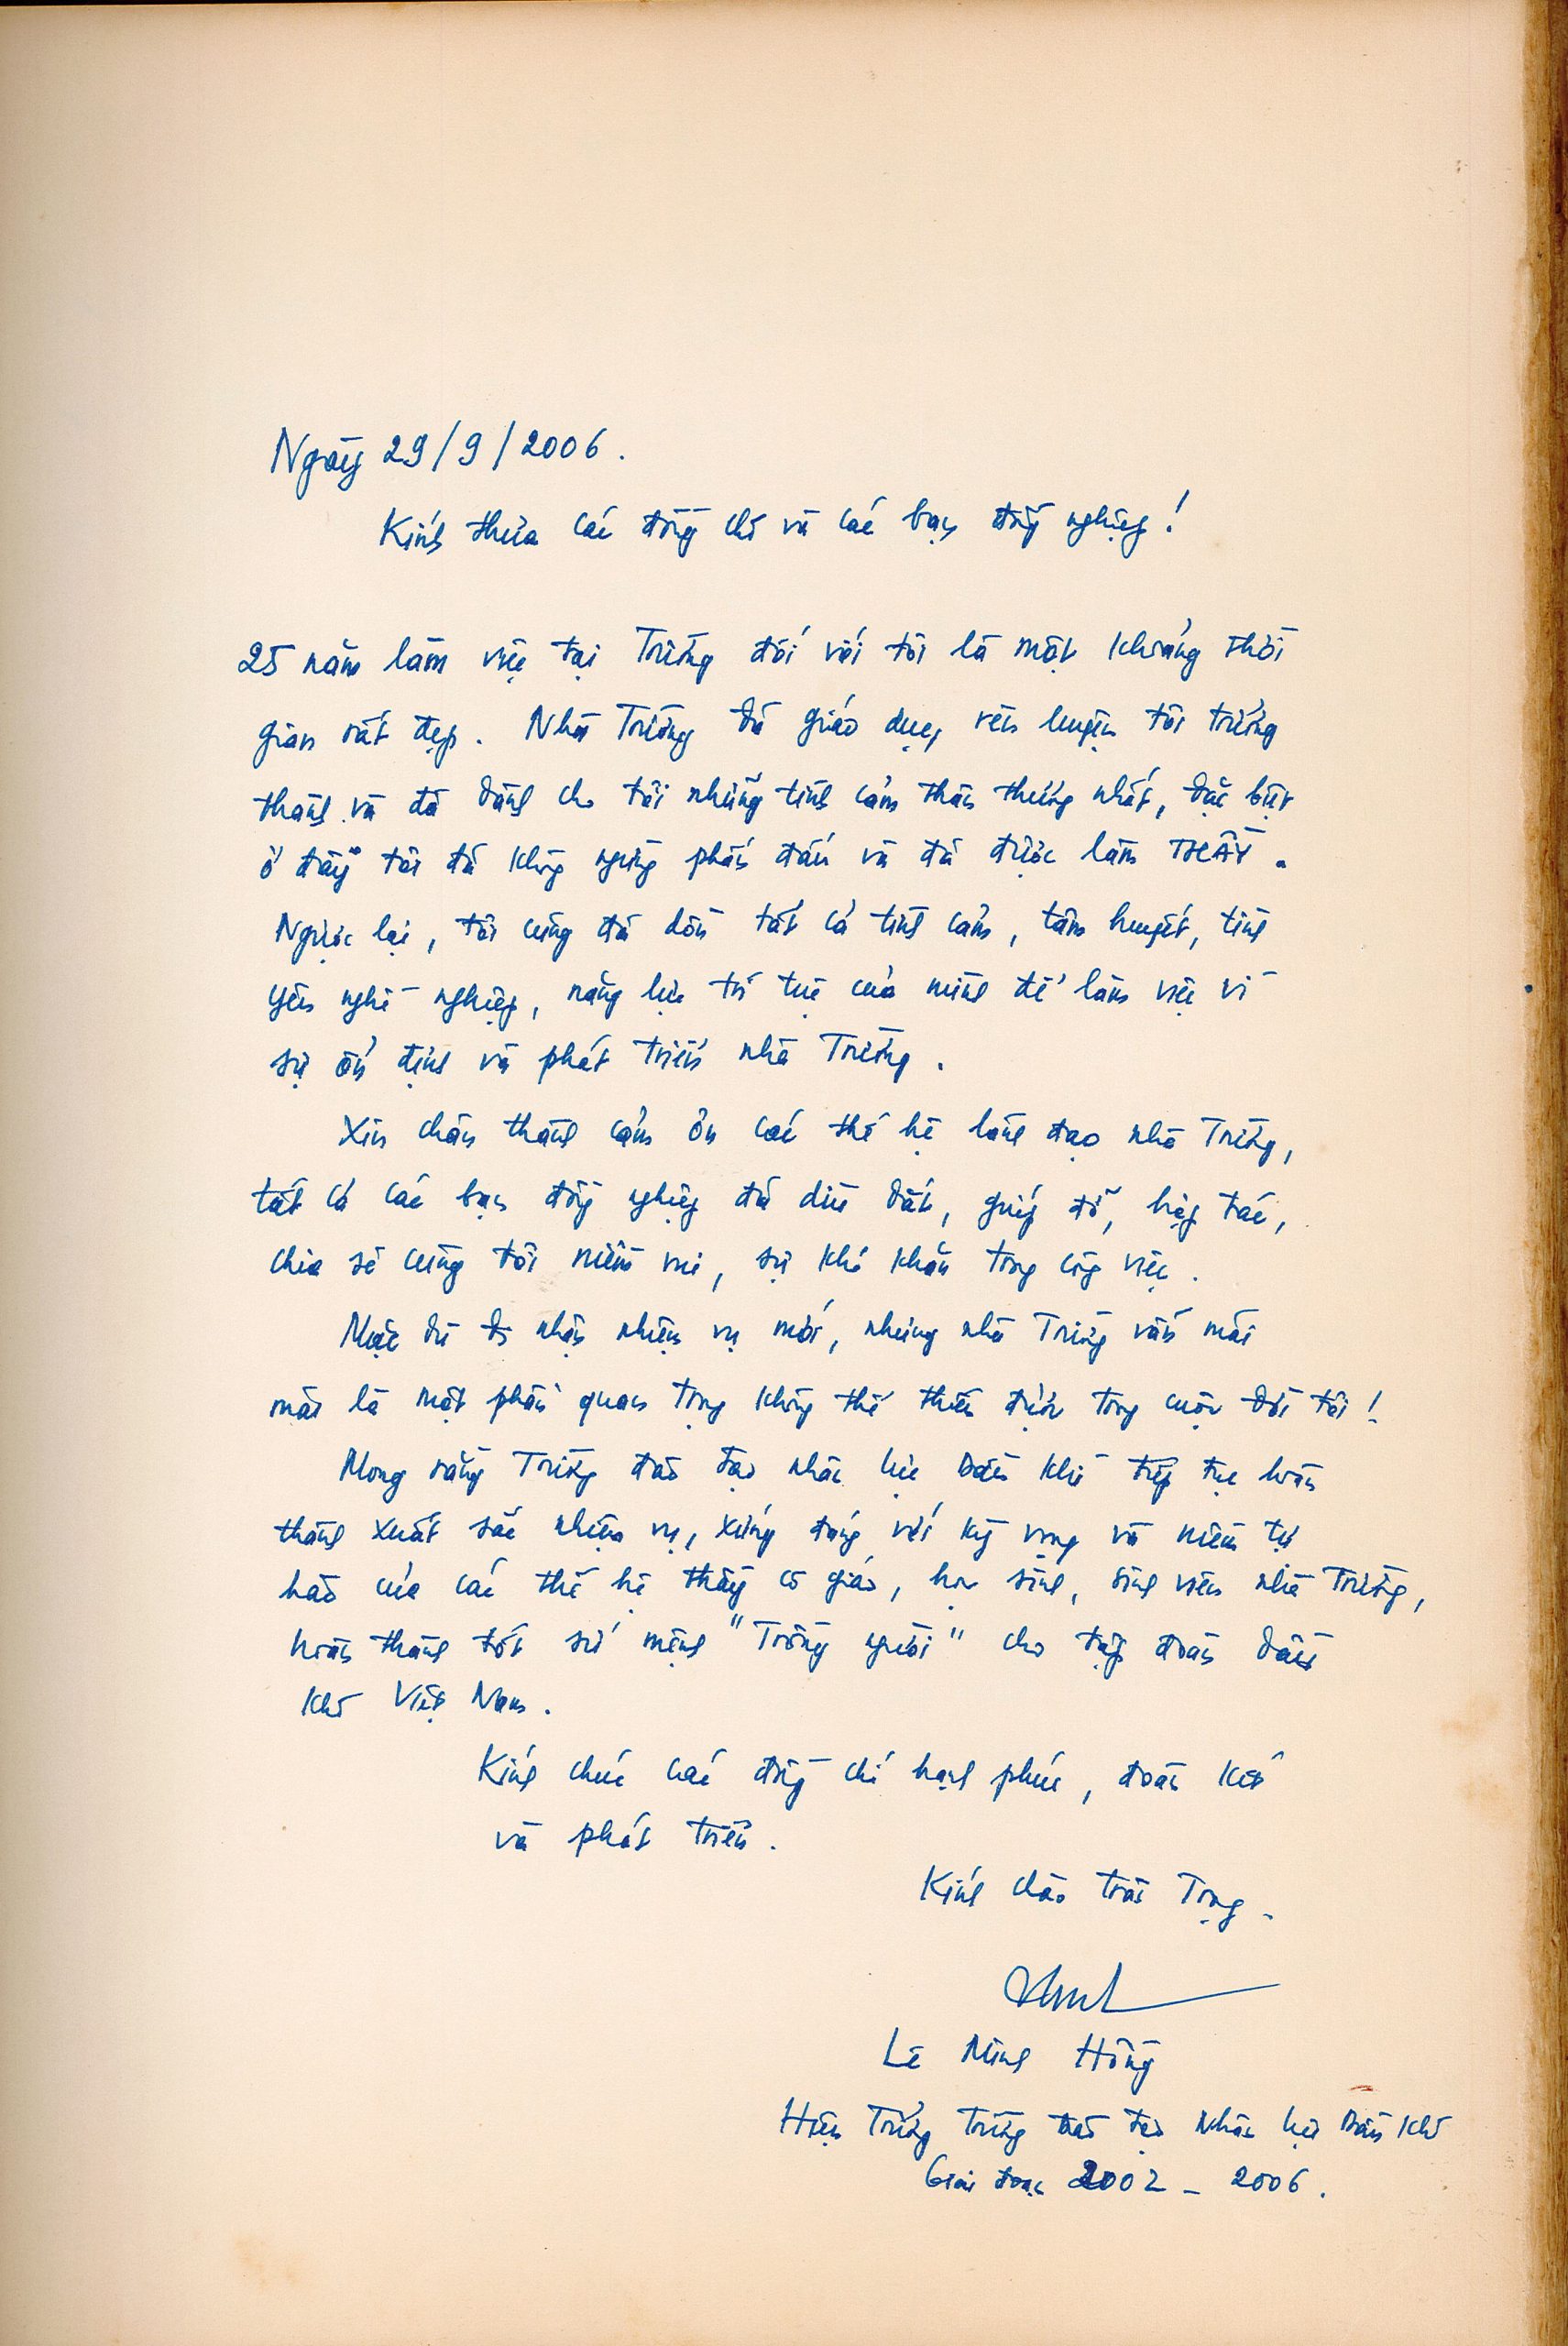 Ngày 29/9/2006.
Kính thưa các đồng chí và các bạn đồng nghiệp!
25 năm làm việc tại Trường đối với tôi là một khoảng thời
gian rất đẹp. Nhà Trường đã giáo dục, rèn luyện tôi trưởng
thành và đã dành cho tôi những tình cảm thân thương nhất, đặc biệt
ở đây tôi đã không ngừng phấn đấu và đã được làm THẦY.
Ngược lại, tôi cũng đã dồn tất cả tình cảm, tâm huyết, tình
yêu nghề nghiệp, năng lực trí tuệ của mình để làm việc vì
sự ổn định và phát triển nhà Trường.
Xin chân thành cảm ơn các thế hệ lãnh đạo nhà Trường,
tất cả các bạn đồng nghiệp đã dìu dắt, giúp đỡ, hợp tác,
chia sẻ cùng tôi niềm vui, sự khó khăn trong công việc.
Mặc dù đi nhận nhiệm vụ mới, nhưng nhà Trường vẫn mãi
mãi là một phần quan trọng không thể thiếu được trong cuộc đời tôi!
Mong rằng Trường đào tạo nhân lực Dầu khí tiếp tục hoàn
thành xuất sắc nhiệm vụ, xứng đáng với kỳ vọng và niềm tự
hào của các thế hệ thầy cô giáo, học sinh, sinh viên nhà Trường,
hoàn thành tốt sứ mệnh "Trồng người" cho tập đoàn dầu
khí Việt Nam.
Kính chúc các đồng chí hạnh phúc, đoàn kết
và phát triển.
Kính chào trân Trọng.
Lê Minh Hồng
Hiệu Trưởng Trường đào tạo Nhân lực Dầu khí
Giai đoạn 2002 - 2006.